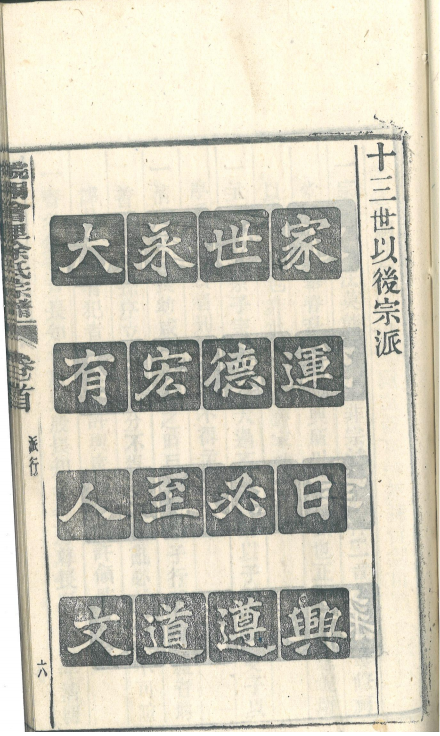 十三世以後宗派
家運日興
世德必遵
永宏至道
大有人文
徐氏宗譜
卷首
派行
六